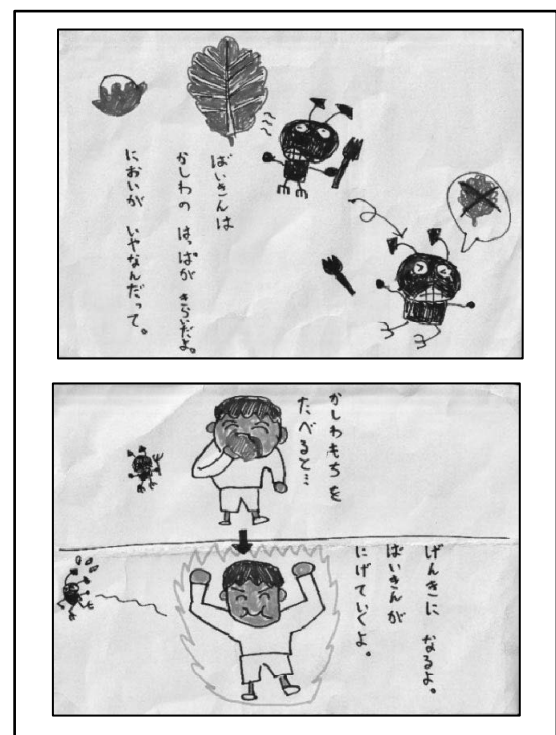 ばいきんは
かしわの はっぱが きらいだよ。
においが いやなんだって。
かしわもちを
たべると…
げんきに なるよ。
ばいきんが
にげていくよ。